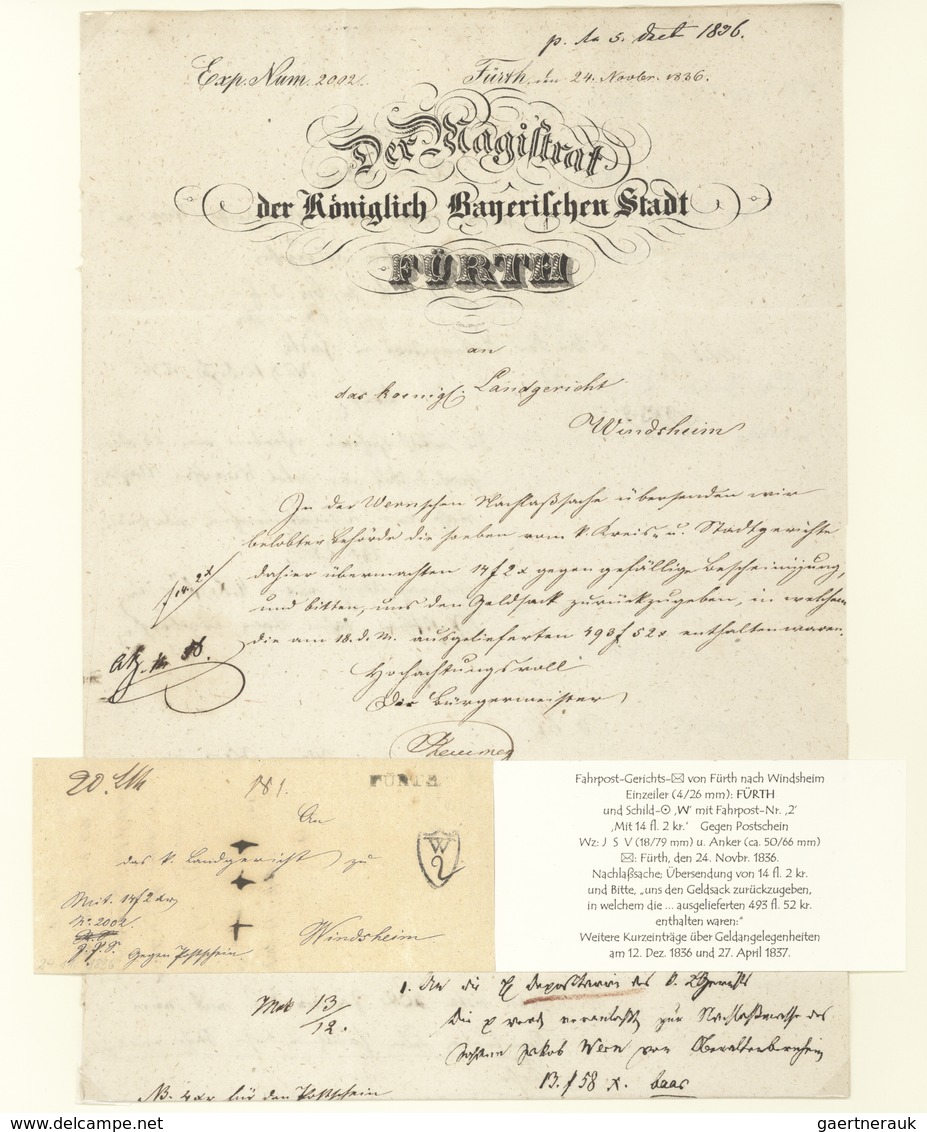 p. den 5. Dect 1836.
Exp. Num. 2002. Fürth, den 24. Novbr. 1836.
Der Magistrat
der Königlich Bayerischen Stadt
FÜRTH
an
das koenigl. Landgericht
Windsheim
In der Wernschen Nachlaßsache übersenden wir
belobter Behörde die soeben vom k. Kreis- u. Stadtgerichte
dahier übermachten 14 f 2 x gegen gefällige Bescheinigung,
und bitten, uns den Geldsack zurückzugeben, in welchem
die am 18. d. M. ausgelieferten 493 f 52 x enthalten waren.
Hochachtungsvoll
Der Bürgermeister
f 14. 2 x
20. Lth 781. FÜRTH
An
das k. Landgericht zu
W
2
Mit 14 f 2 kr
Nr. 2002.
Windsheim
Gegen Postschein.
Fahrpost-Gerichts-✉ von Fürth nach Windsheim
Einzeiler (4/26 mm): FÜRTH
und Schild-⊙ ‚W' mit Fahrpost-Nr. ‚2'
‚Mit 14 fl. 2 kr.' Gegen Postschein
Wz: J S V (18/79 mm) u. Anker (ca. 50/66 mm)
✉: Fürth, den 24. Novbr. 1836.
Nachlaßsache; Übersendung von 14 fl. 2 kr.
und Bitte, „uns den Geldsack zurückzugeben,
in welchem die ... ausgelieferten 493 fl. 52 kr.
enthalten waren:"
Weitere Kurzeinträge über Geldangelegenheiten
am 12. Dez. 1836 und 27. April 1837.
1. An die Depositarien des k. LGerichts
13/12.
die werden veranlaßt, zur Nachlaßmasse des
Johann Jakob Wern von Oberaltenbernheim
13. f 58 x. baar
NB. 4 xr für den Postschein
gaertnerauk
www.delcampe.net